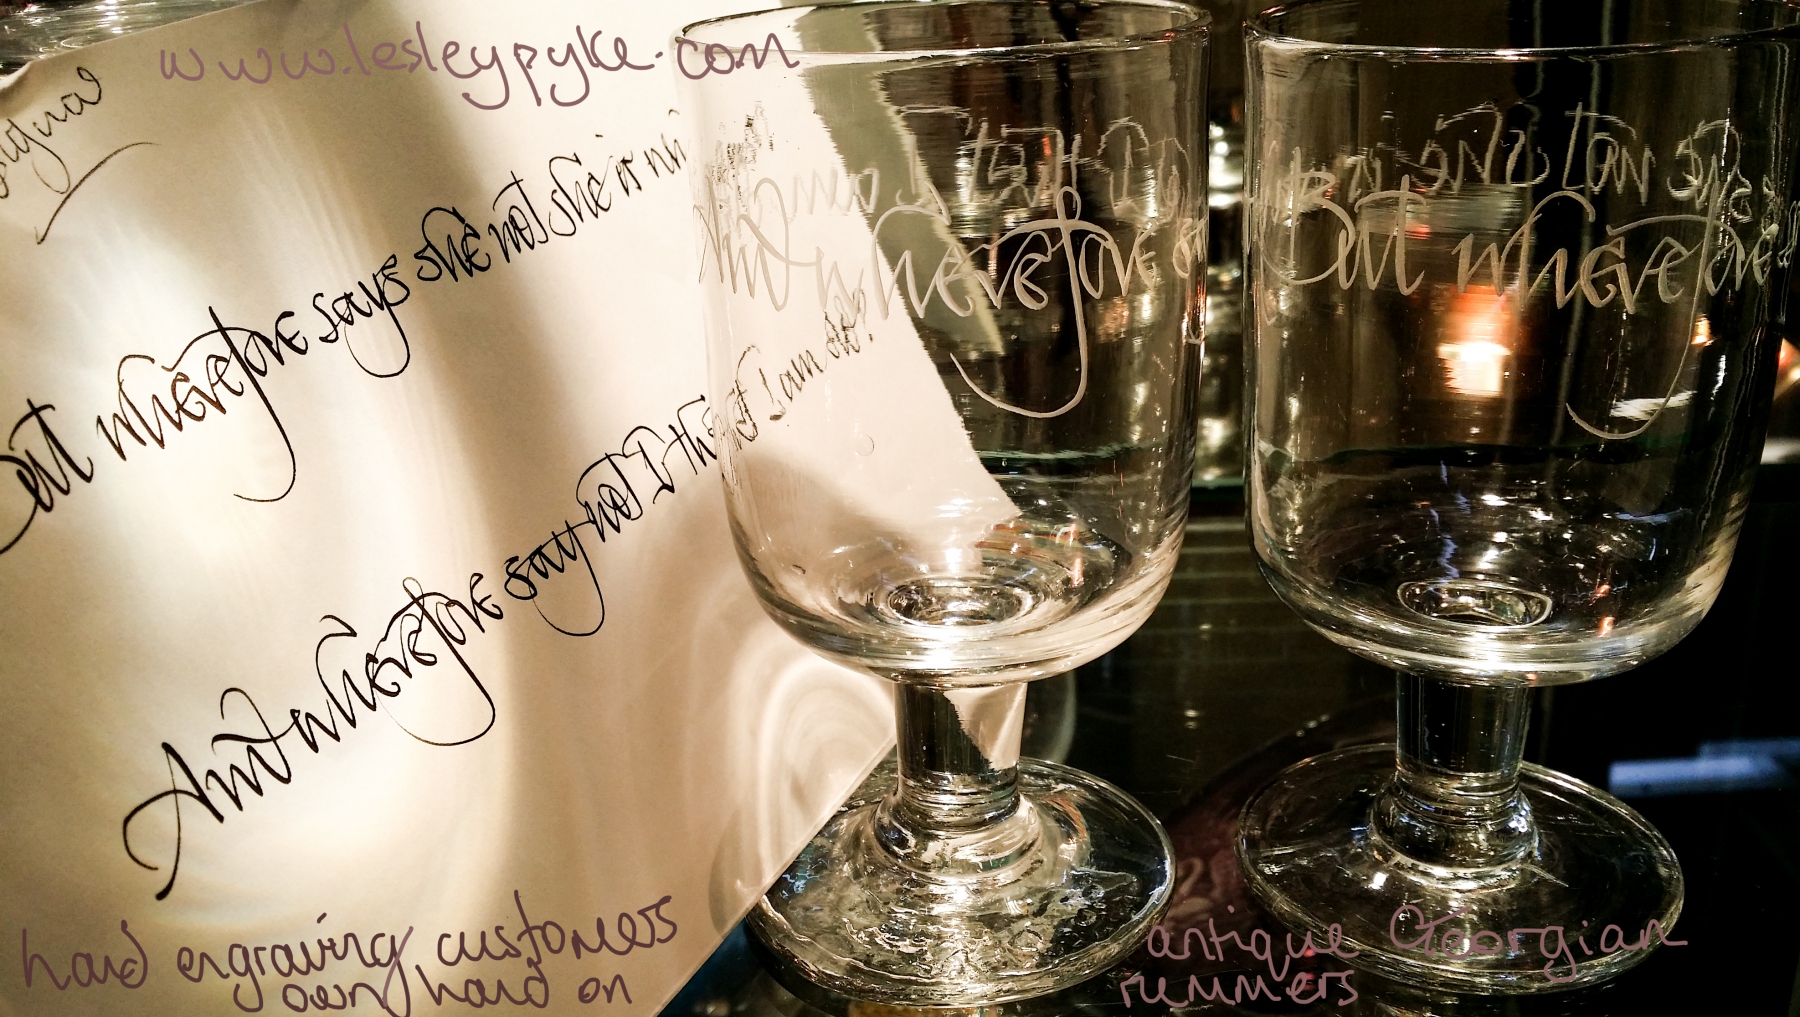 www.lesleypyke.com
But wherefore says she not she is
And wherefore say not I that I am old?
And wherefore
But wherefore
hand engraving customers
own hand on
antique Georgian
rummers